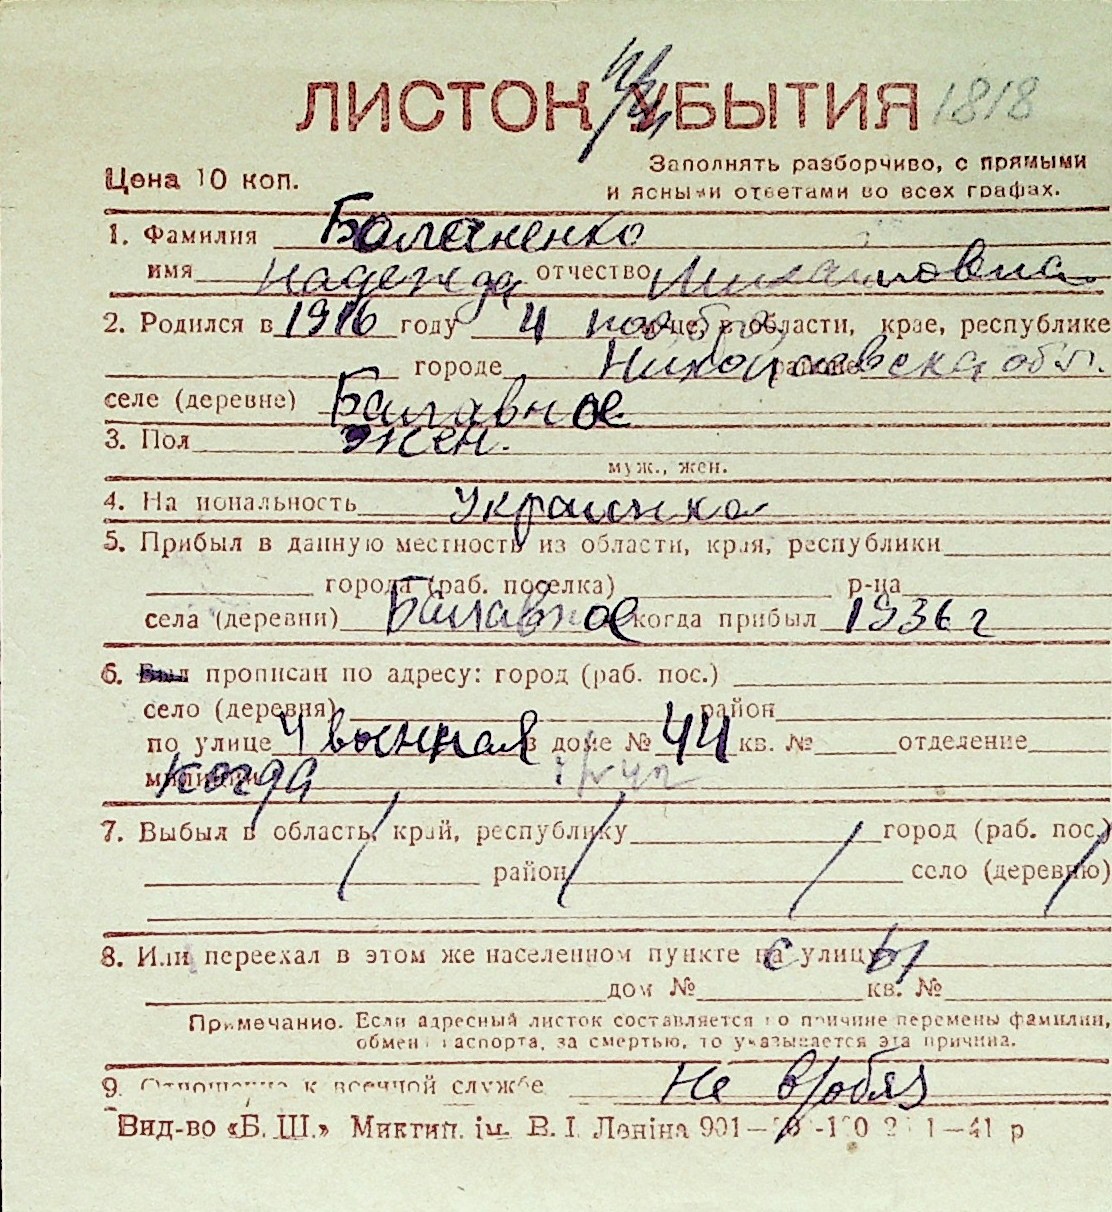 ЛИСТОК УБЫТИЯ 1818
Цена 10 коп.
Заполнять разборчиво, с прямыми
и ясными ответами во всех графах.
1. Фамилия Баланенко
имя Надежда отчество Михайловна
2. Родился в 1916 году 4 ноября м-це, в области, крае, республике
городе районе Николаевска обл.
селе (деревне) Балавное
3. Пол жен.
муж., жен.
4. Национальность Украинка
5. Прибыл в данную местность из области, края, республики
города (раб. поселка) р-на
села (деревни) Балавное когда прибыл 1936 г
6. Был прописан по адресу: город (раб. пос.)
село (деревня) район
по улице 4 военная в доме № 44 кв. № отделение
милиции когда
7. Выбыл в область, край, республику город (раб. пос.)
район село (деревню)
8. Или переехал в этом же населенном пункте с улицы
дом № кв. №
Примечание. Если адресный листок составляется по причине перемены фамилии,
обмен паспорта, за смертью, то указывается эта причина.
9. Отношение к военной службе Не в/обяз
Вид-во «Б. Ш.» Миктип. ім. В. І. Леніна 901— 1—41 р